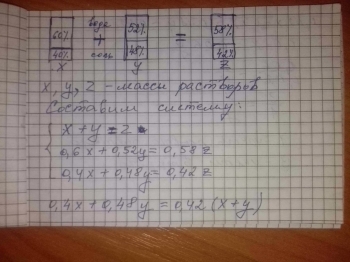 60% вода 52% 58%
+ =
40% соль 48% 42%
x y z
x, y, z - массы растворов
Составим систему:
x + y = z
0,6x + 0,52y = 0,58z
0,4x + 0,48y = 0,42z
0,4x + 0,48y = 0,42 (x+y)